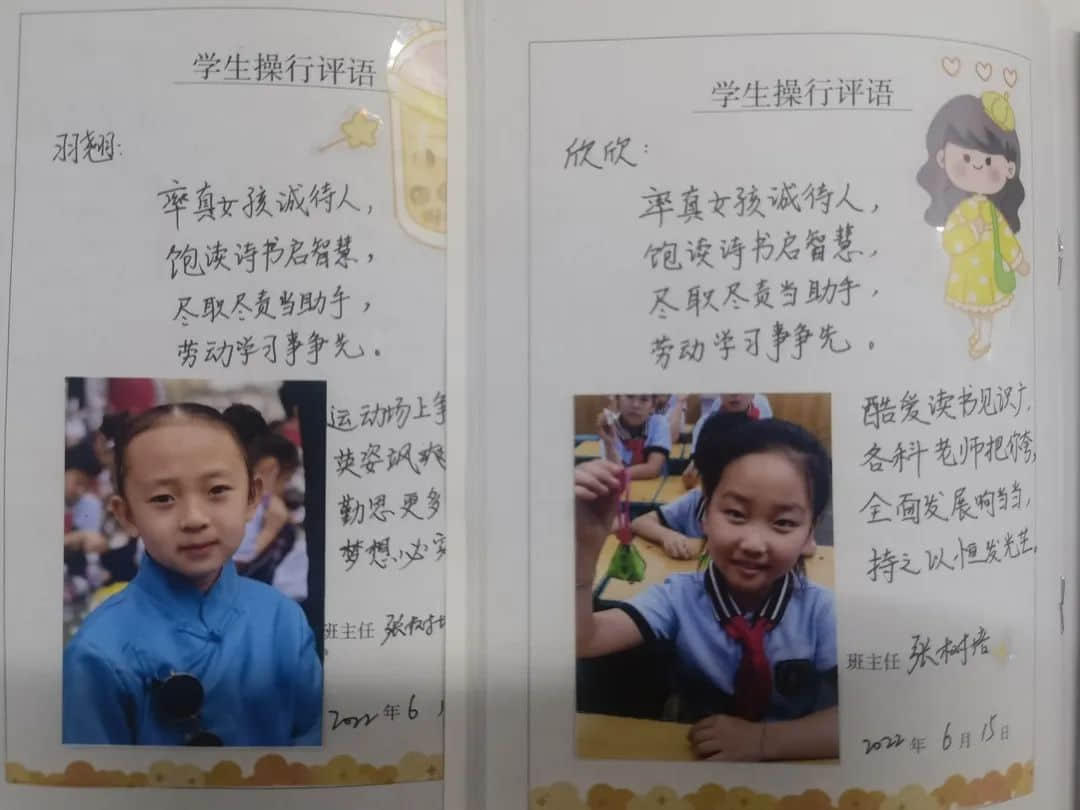 学生操行评语
羽翘:
率真女孩诚待人，
饱读诗书启智慧，
尽职尽责当助手，
劳动学习事争先。
运动场上争
英姿飒爽
勤思更多
梦想必实
班主任 张树培
2022年6月
学生操行评语
欣欣：
率真女孩诚待人，
饱读诗书启智慧，
尽职尽责当助手，
劳动学习事争先。
酷爱读书见识广，
各科老师把你夸，
全面发展响当当，
持之以恒发光芒。
班主任 张树培
2022年6月15日